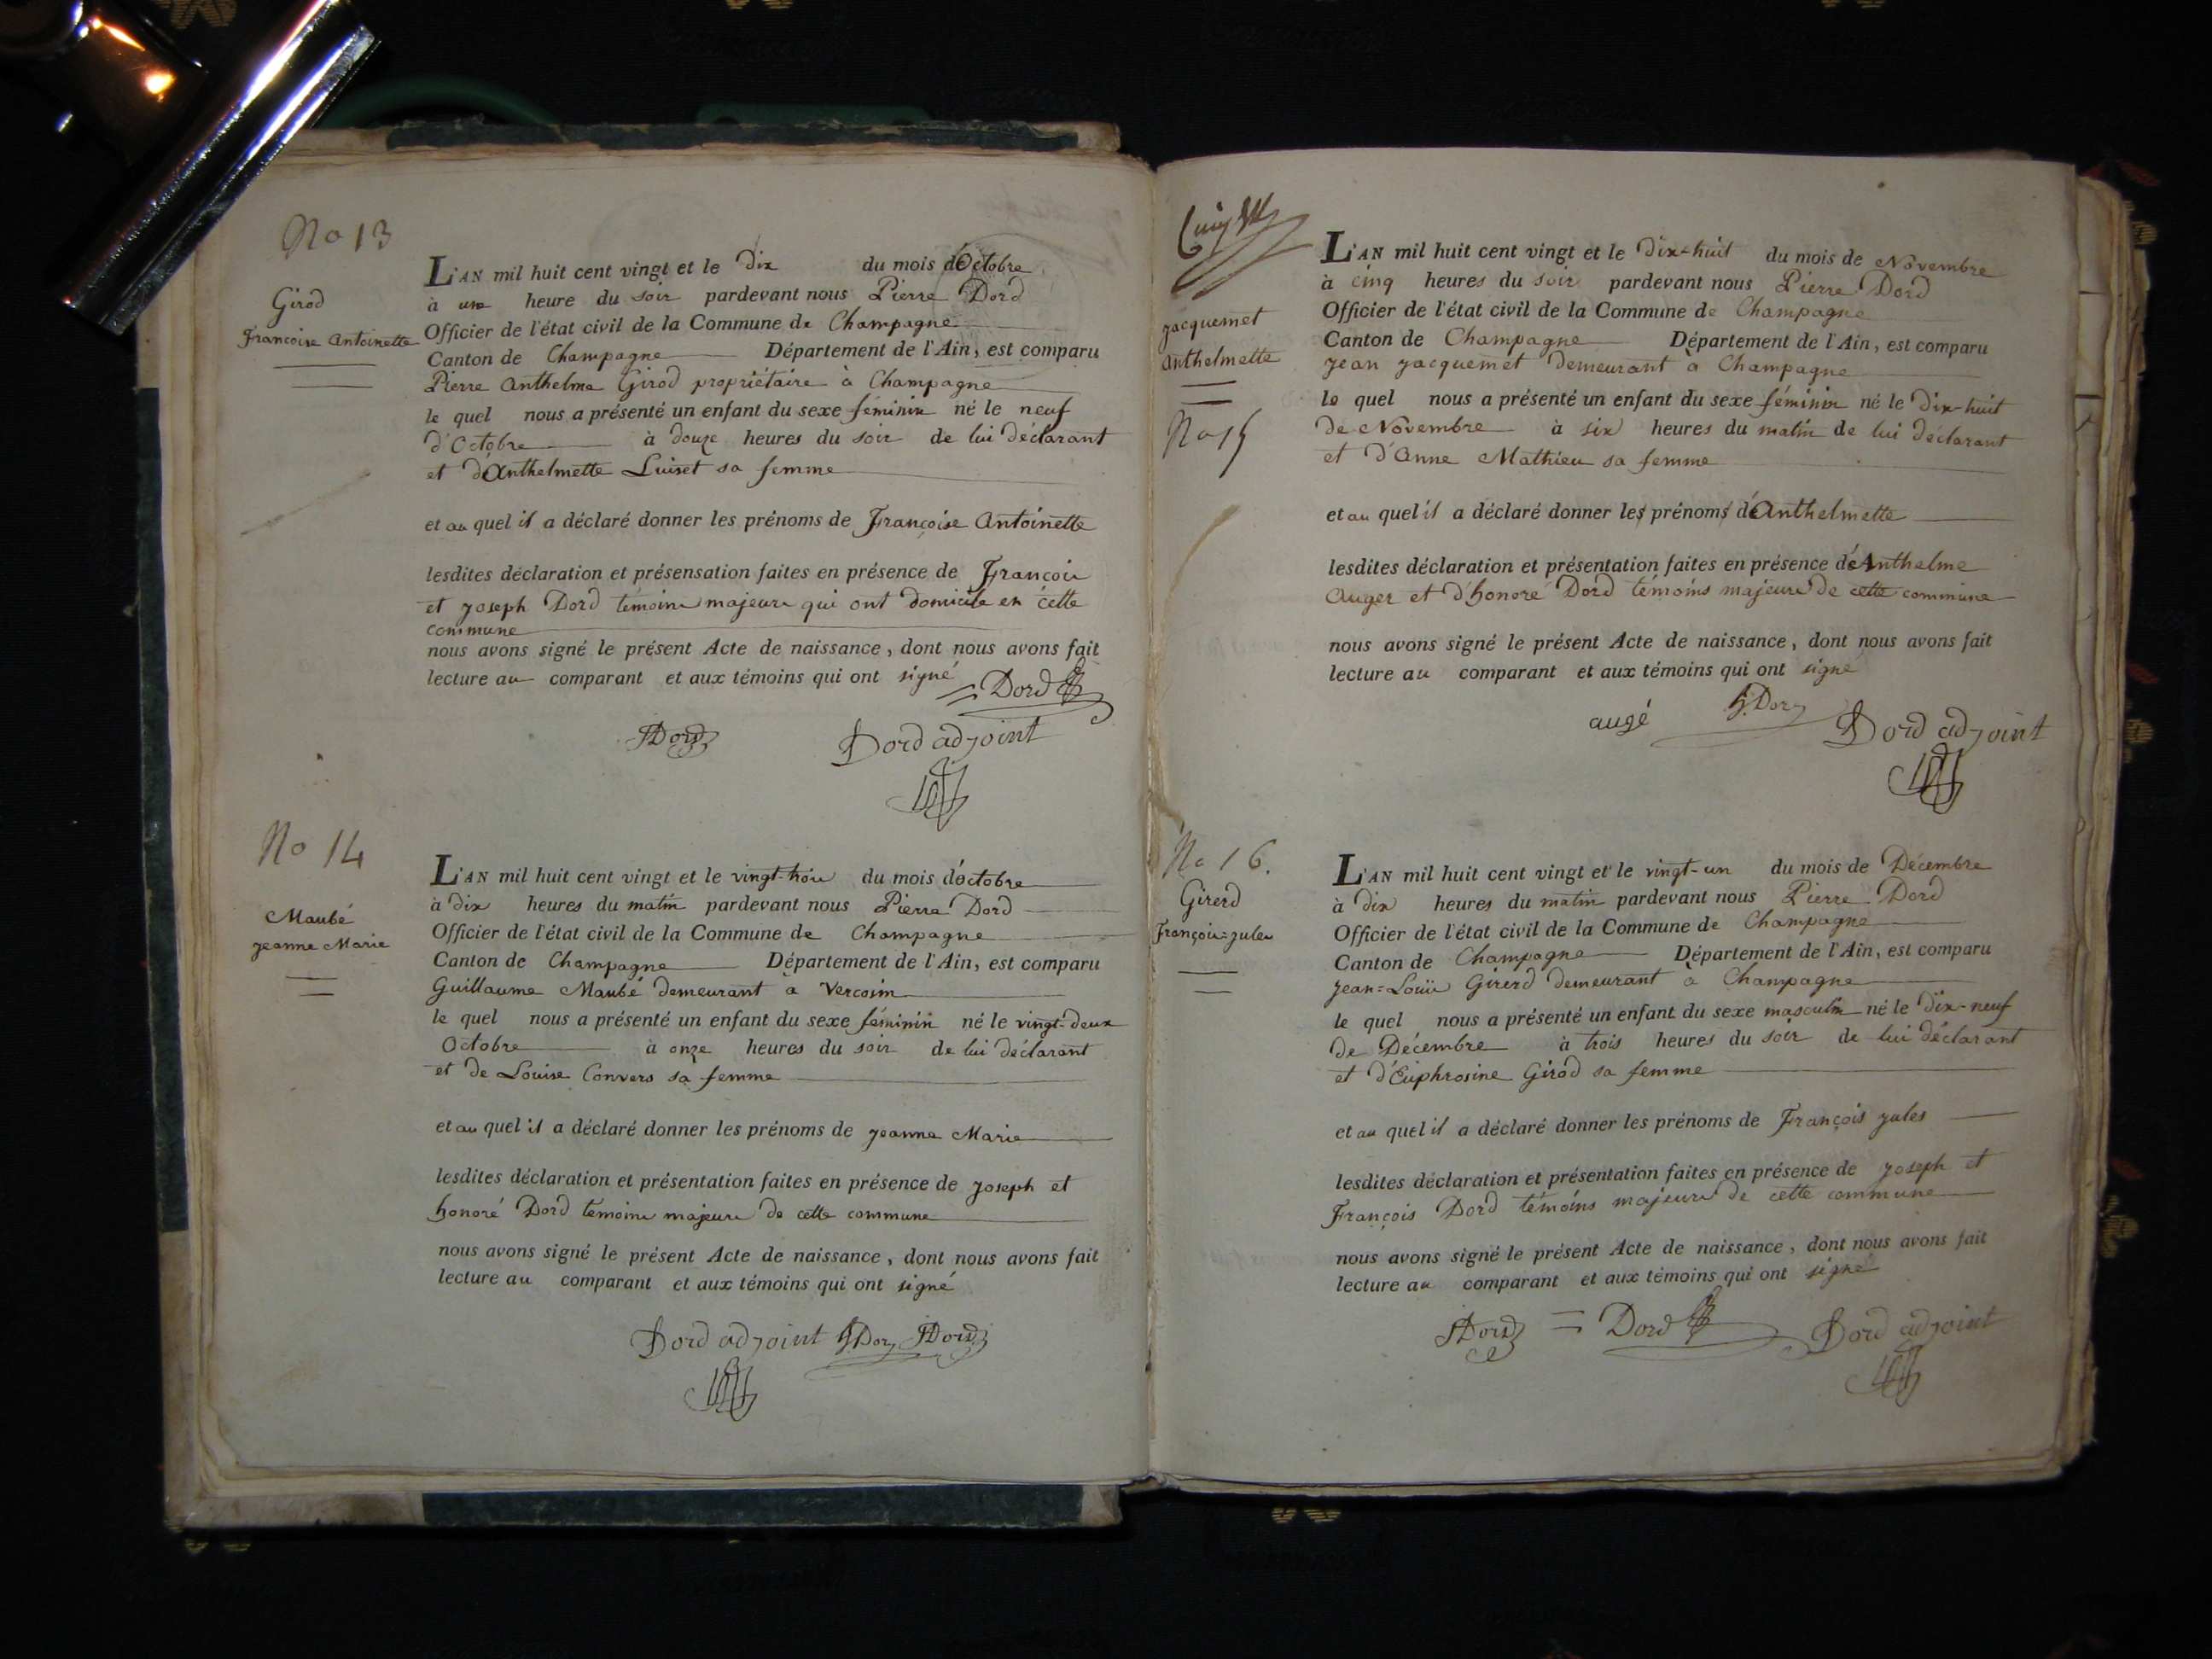 No 13
Girod
Francoise Antoinette
L'AN mil huit cent vingt et le Dix du mois d'Octobre
à une heure du soir pardevant nous Pierre Dord
Officier de l'état civil de la Commune de Champagne
Canton de Champagne Département de l'Ain, est comparu
Pierre Anthelme Girod propriétaire à Champagne
le quel nous a présenté un enfant du sexe féminin né le neuf
d'Octobre à douze heures du soir de lui déclarant
et d'Anthelmette Luiset sa femme
et au quel il a déclaré donner les prénoms de Françoise Antoinette
lesdites déclaration et présensation faites en présence de François
et Joseph Dord témoins majeurs qui ont domicile en cette
commune
nous avons signé le présent Acte de naissance, dont nous avons fait
lecture au comparant et aux témoins qui ont signé
Dord
JDord
Dord adjoint
No 14
Maubé
Jeanne Marie
L'AN mil huit cent vingt et le vingt-trois du mois d'octobre
à Dix heures du matin pardevant nous Pierre Dord
Officier de l'état civil de la Commune de Champagne
Canton de Champagne Département de l'Ain, est comparu
Guillaume Maubé demeurant a Vercosin
le quel nous a présenté un enfant du sexe féminin né le vingt-deux
Octobre à onze heures du soir de lui déclarant
et de Louise Convers sa femme
et au quel il a déclaré donner les prénoms de Jeanne Marie
lesdites déclaration et présentation faites en présence de Joseph et
honoré Dord témoins majeurs de cette commune
nous avons signé le présent Acte de naissance, dont nous avons fait
lecture au comparant et aux témoins qui ont signé
Dord adjoint hDord JDord
Jacquemet
Anthelmette
No 15
L'AN mil huit cent vingt et le Dix-huit du mois de Novembre
à cinq heures du soir pardevant nous Pierre Dord
Officier de l'état civil de la Commune de Champagne
Canton de Champagne Département de l'Ain, est comparu
Jean Jacquemet Demeurant à Champagne
le quel nous a présenté un enfant du sexe féminin né le Dix-huit
de Novembre à six heures du matin de lui déclarant
et d'Anne Mathieu sa femme
et au quel il a déclaré donner les prénoms d'Anthelmette
lesdites déclaration et présentation faites en présence d'Anthelme
Auger et d'honoré Dord témoins majeurs de cette commune
nous avons signé le présent Acte de naissance, dont nous avons fait
lecture au comparant et aux témoins qui ont signé
augé hDord Dord adjoint
No 16.
Girerd
François=Jules
L'AN mil huit cent vingt et le vingt-un du mois de Décembre
à Dix heures du matin pardevant nous Pierre Dord
Officier de l'état civil de la Commune de Champagne
Canton de Champagne Département de l'Ain, est comparu
Jean=Louis Girerd demeurant à Champagne
le quel nous a présenté un enfant du sexe masculin né le Dix-neuf
de Décembre à trois heures du soir de lui déclarant
et d'Euphrosine Girod sa femme
et au quel il a déclaré donner les prénoms de François Jules
lesdites déclaration et présentation faites en présence de Joseph et
François Dord témoins majeurs de cette commune
nous avons signé le présent Acte de naissance, dont nous avons fait
lecture au comparant et aux témoins qui ont signé
JDord = Dord Dord adjoint